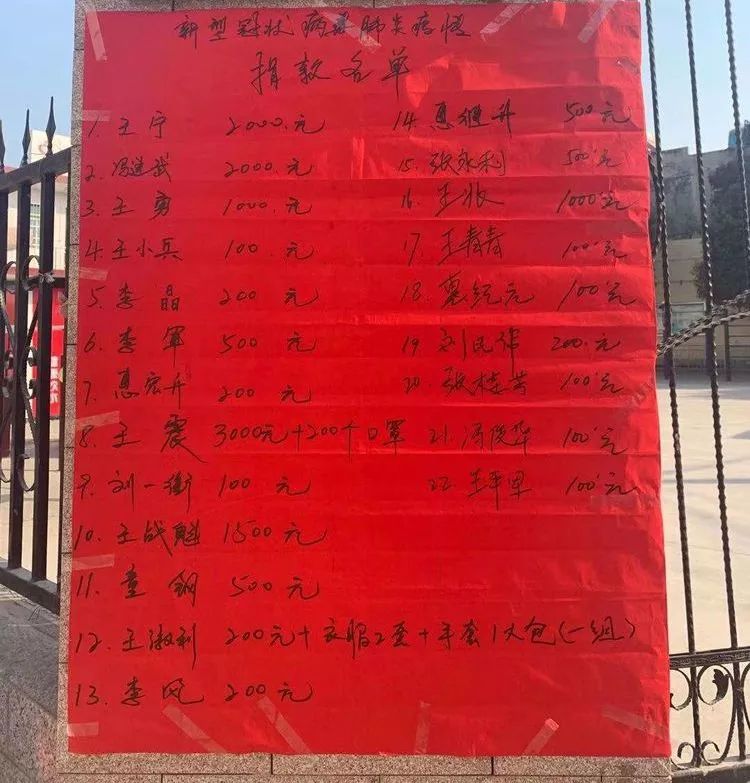 新型冠状病毒肺炎疫情
捐款名单
1. 王宁 2000.元
2. 冯进武 2000.元
3. 王勇 1000.元
4. 王小兵 100.元
5. 李晶 200元
6. 李军 500元
7. 惠宏升 200元
8. 王震 3000元+200个口罩
9. 刘一衡 100元
10. 王战魁 1500元
11. 童钢 500元
12. 王淑利 200元+衣服2套+手套1大包(一组)
13. 李风 200元
14. 惠继升 500元
15. 张永利 500元
16. 王 1000元
17. 王青青 100元
18. 元 100元
19. 刘民 200.元
20. 张桂芳 100元
21. 冯俊华 100元
22. 100元